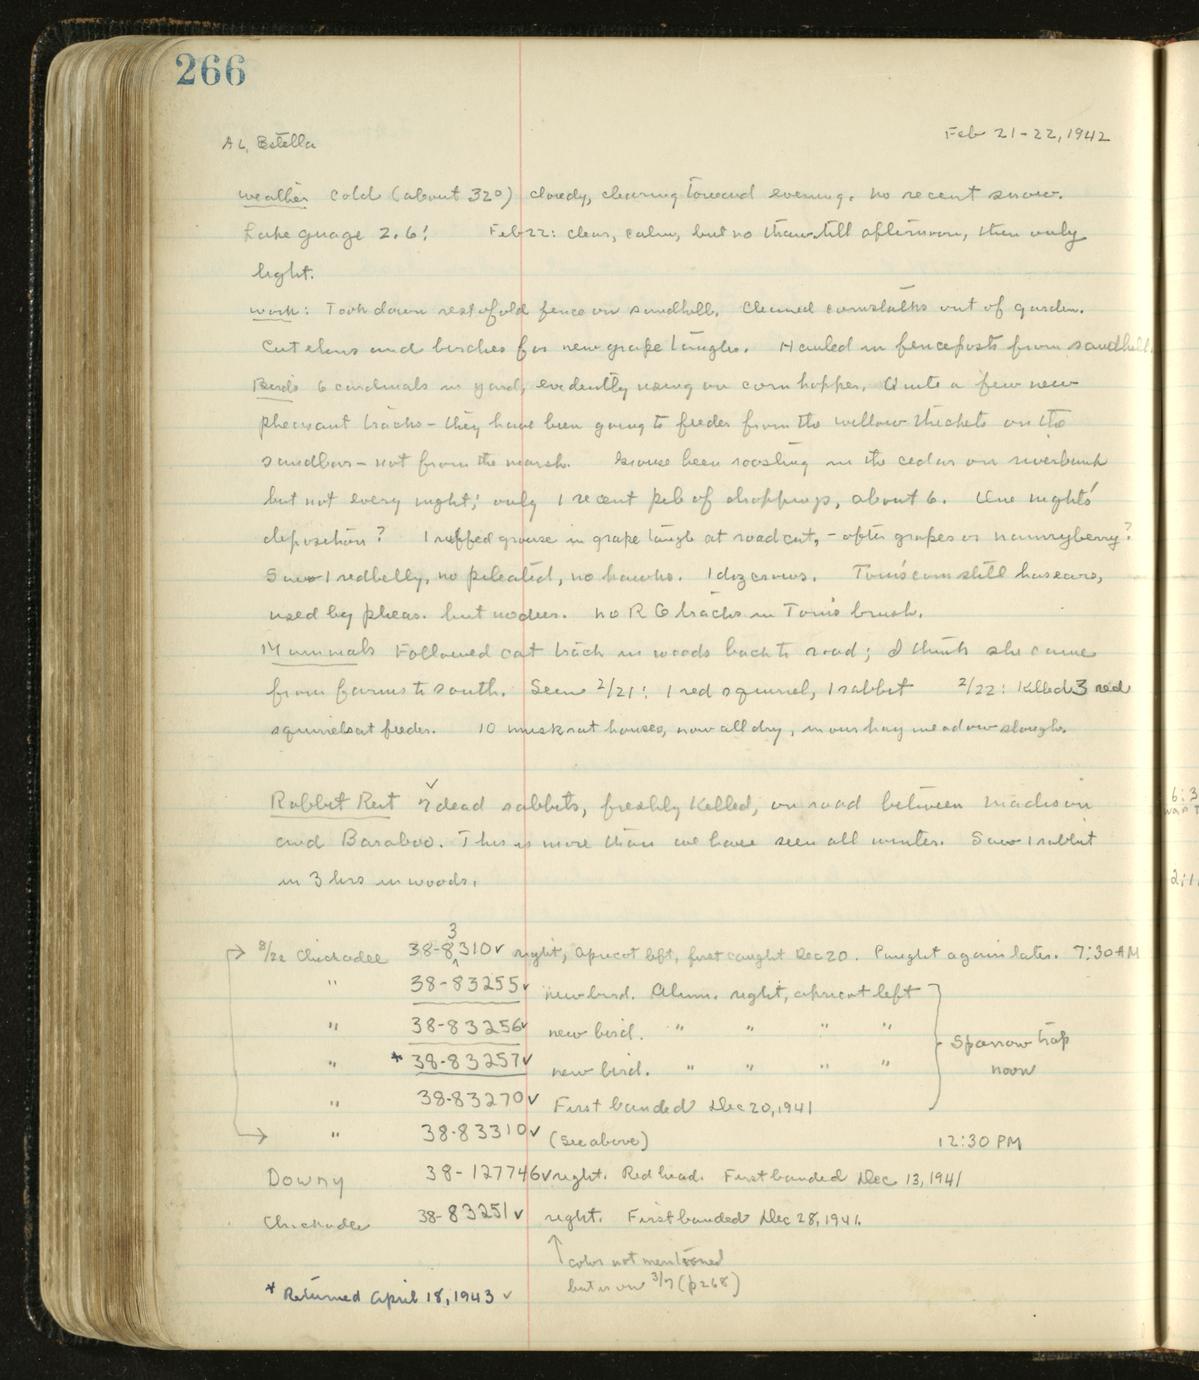 266
AL, Estella
Feb 21-22, 1942
weather cold (about 32°) cloudy, clearing toward evening. no recent snow.
Lake guage 2.6! Feb 22: clear, calm, but no thaw till afternoon, then only
light.
work: Took down rest of old fence on sandhill. Cleaned cornstalks out of garden.
Cut elms and birches for new grape tangles. Hauled in fenceposts from sandhill.
Birds 6 cardinals in yard, evidently using on corn hopper. Quite a few new
pheasant tracks - they have been going to feeder from the willow thickets on the
sandbar - not from the marsh. Grouse been roosting in the cedar on riverbank
but not every night; only 1 recent pile of droppings, about 6. One nights'
deposition? 1 ruffed grouse in grape tangle at road cut, - after grapes or nannyberry?
Saw 1 redbelly, no pileated, no hawks. 1 doz crows. Tom's corn still has ears,
used by pheas. but no deer. no RG tracks in Tom's brush.
Mammals Followed cat track in woods back to road; I think she came
from farms to south. Seen 2/21: 1 red squirrel, 1 rabbit 2/22: Killed 3 red
squirrels at feeder. 10 muskrat houses, now all dry, in our hay meadow slough.
Rabbit Rut 7 dead rabbits, freshly killed, on road between Madison
and Baraboo. This is more than we have seen all winter. Saw 1 rabbit
in 3 hrs in woods.
2/22 Chickadee 38-83310 ✓ right, apricot left, first caught Dec 20. Caught again later. 7:30 AM
" 38-83255 ✓ new bird. Alum. right, apricot left
" 38-83256 ✓ new bird. " " " "
" * 38-83257 ✓ new bird. " " " "
Sparrow trap
noon
" 38-83270 ✓ First banded Dec 20, 1941
" 38-83310 ✓ (see above) 12:30 PM
Downy 38-127746 ✓ right. Red head. First banded Dec 13, 1941
Chickadee 38-83251 ✓ right. First banded Dec 28, 1941.
↑ color not mentioned
but is on 3/7 (p268)
* Returned April 18, 1943 ✓